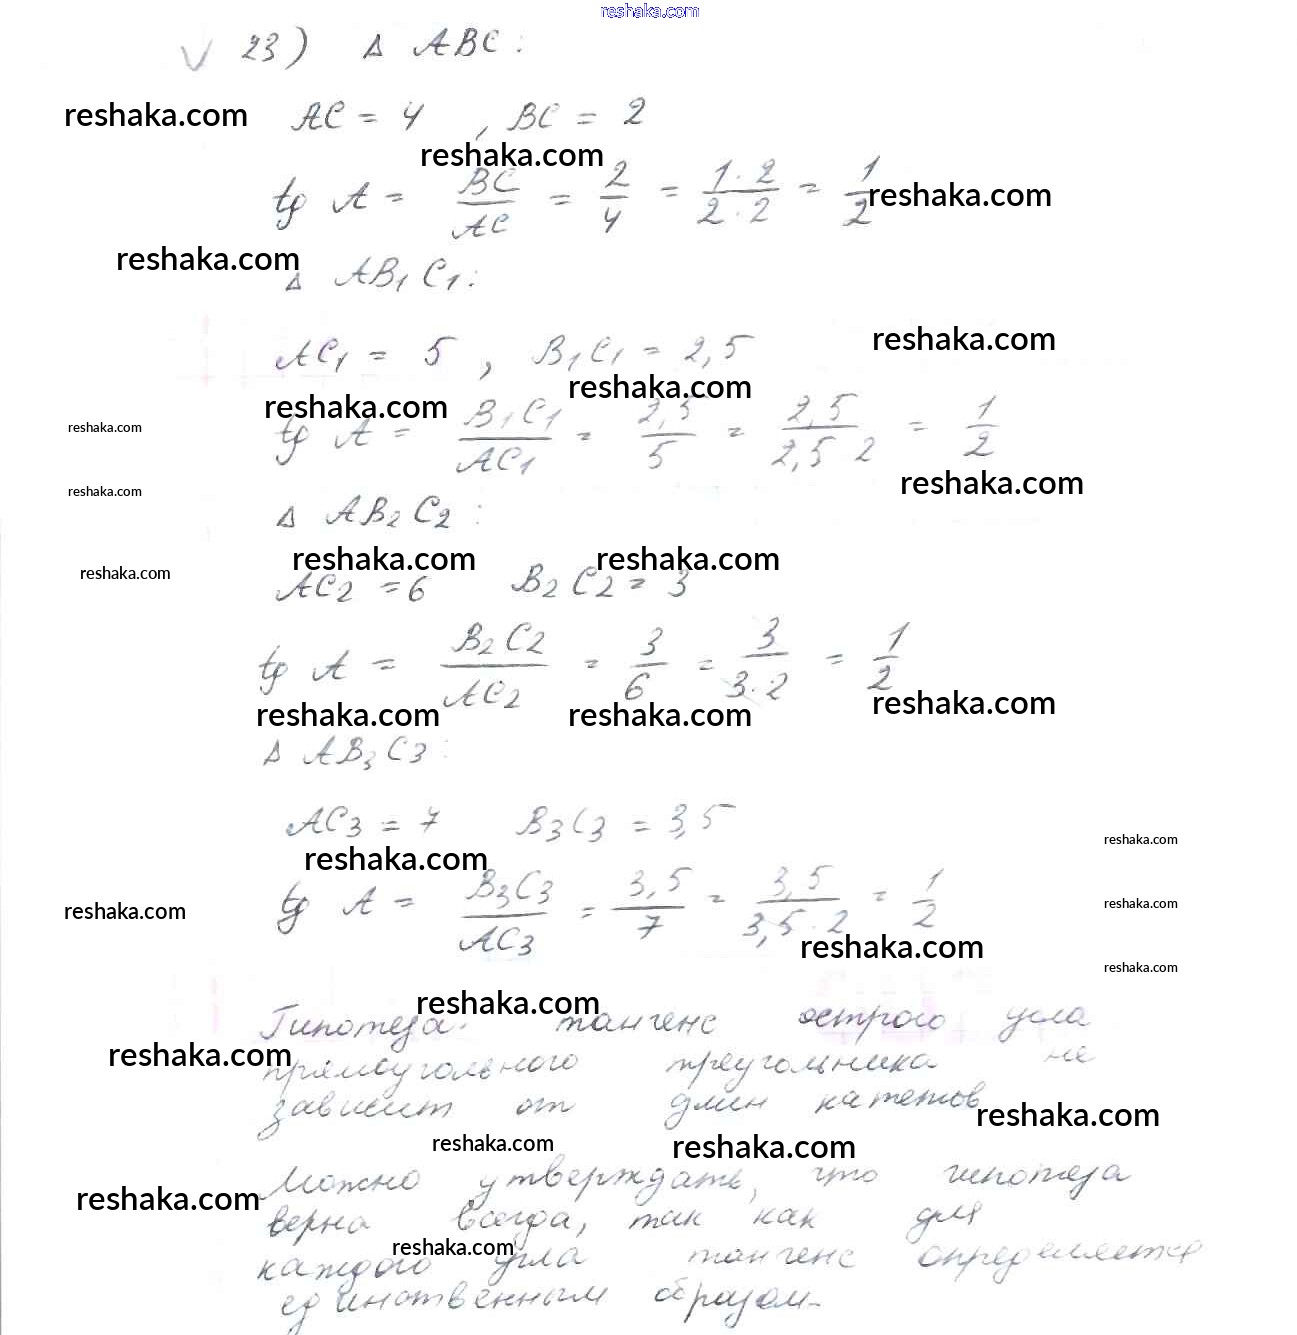 reshaka.com
√ 23) Δ ABC:
reshaka.com AC = 4 , BC = 2
reshaka.com
tg A = BC/AC = 2/4 = 1·2/2·2 = 1/2 reshaka.com
reshaka.com
Δ AB₁C₁:
reshaka.com
AC₁ = 5 , B₁C₁ = 2,5
reshaka.com
reshaka.com
reshaka.com tg A = B₁C₁/AC₁ = 2,5/5 = 2,5/2,5·2 = 1/2
reshaka.com
reshaka.com
Δ AB₂C₂:
reshaka.com reshaka.com
reshaka.com AC₂ = 6 B₂C₂ = 3
tg A = B₂C₂/AC₂ = 3/6 = 3/3·2 = 1/2
reshaka.com reshaka.com reshaka.com
Δ AB₃C₃:
AC₃ = 7 B₃C₃ = 3,5
reshaka.com
reshaka.com
reshaka.com tg A = B₃C₃/AC₃ = 3,5/7 = 3,5/3,5·2 = 1/2 reshaka.com
reshaka.com
reshaka.com
reshaka.com
Гипотеза: тангенс острого угла
reshaka.com
прямоугольного треугольника не
зависит от длин катетов
reshaka.com
reshaka.com reshaka.com
Можно утверждать, что гипотеза
reshaka.com
верна всегда, так как для
reshaka.com
каждого угла тангенс определяется
единственным образом.